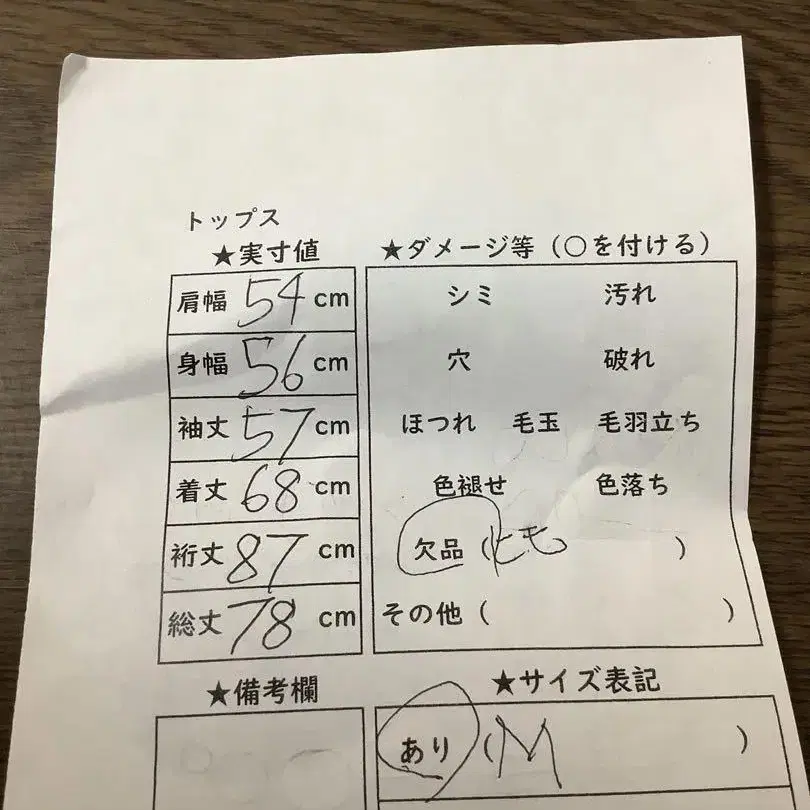 トップス
★実寸値
肩幅 54 cm
身幅 56 cm
袖丈 57 cm
着丈 68 cm
裄丈 87 cm
総丈 78 cm
★ダメージ等（○を付ける）
シミ 汚れ
穴 破れ
ほつれ 毛玉 毛羽立ち
色褪せ 色落ち
欠品（ヒモ ）
その他（ ）
★備考欄
★サイズ表記
あり（M ）